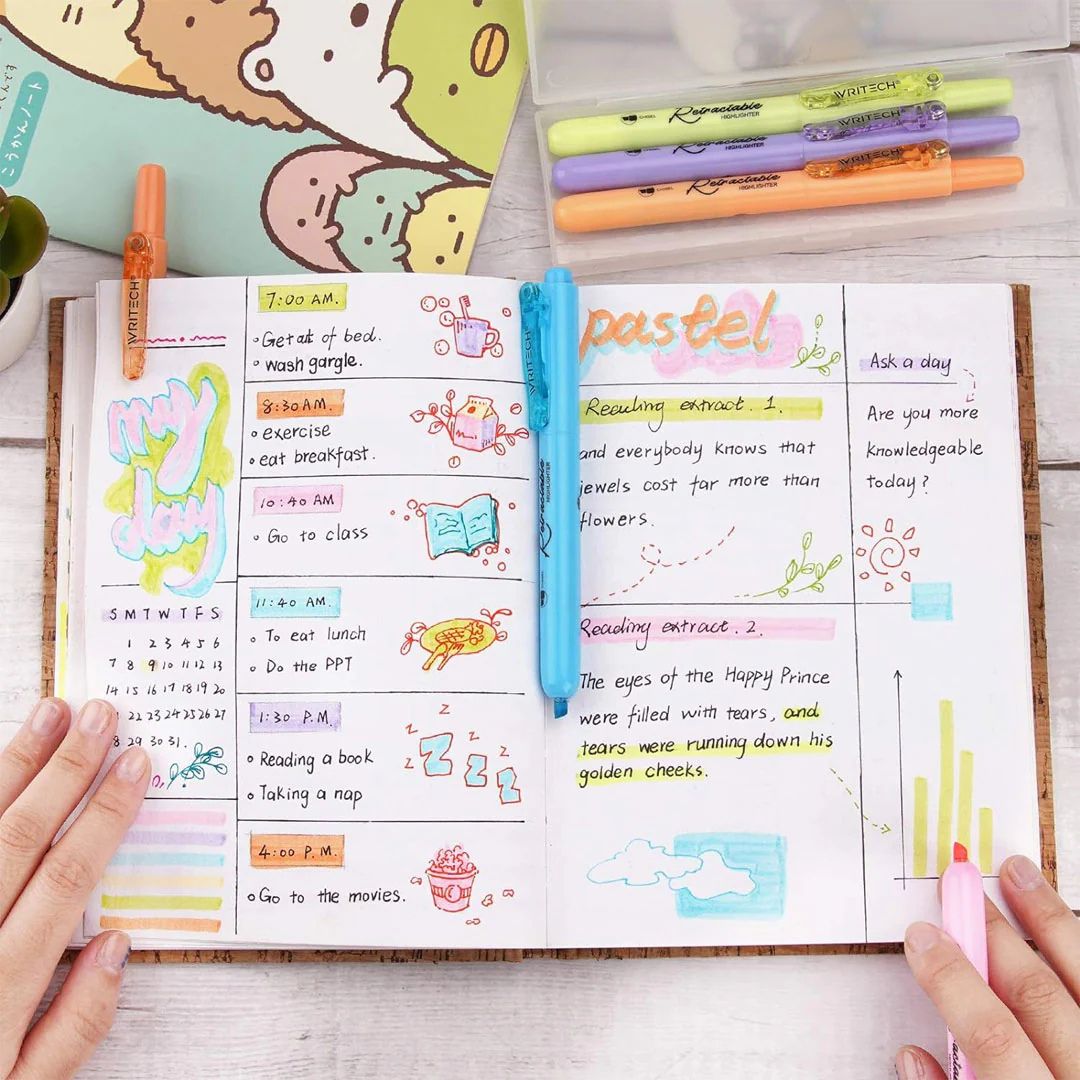 こうかんノート
WRITECH
CHISEL Retractable HIGHLIGHTER
WRITECH
CHISEL Retractable HIGHLIGHTER
WRITECH
CHISEL Retractable HIGHLIGHTER
WRITECH
my
day
S M T W T F S
1 2 3 4 5 6
7 8 9 10 11 12 13
14 15 16 17 18 19 20
22 23 24 25 26 27
29 30 31.
7:00 AM.
Get out of bed.
wash gargle.
8:30 AM.
exercise
eat breakfast.
10:40 AM
Go to class
11:40 AM.
To eat lunch
Do the PPT
1:30 P.M.
Reading a book
Taking a nap
z
z
Z
z
Z
z
Z
4:00 P.M.
Go to the movies.
WRITECH
Retractable
HIGHLIGHTER
pastel
Reading extract. 1.
and everybody knows that
jewels cost far more than
flowers.
Reading extract. 2.
The eyes of the Happy Prince
were filled with tears, and
tears were running down his
golden cheeks.
Ask a day
Are you more
knowledgeable
today?